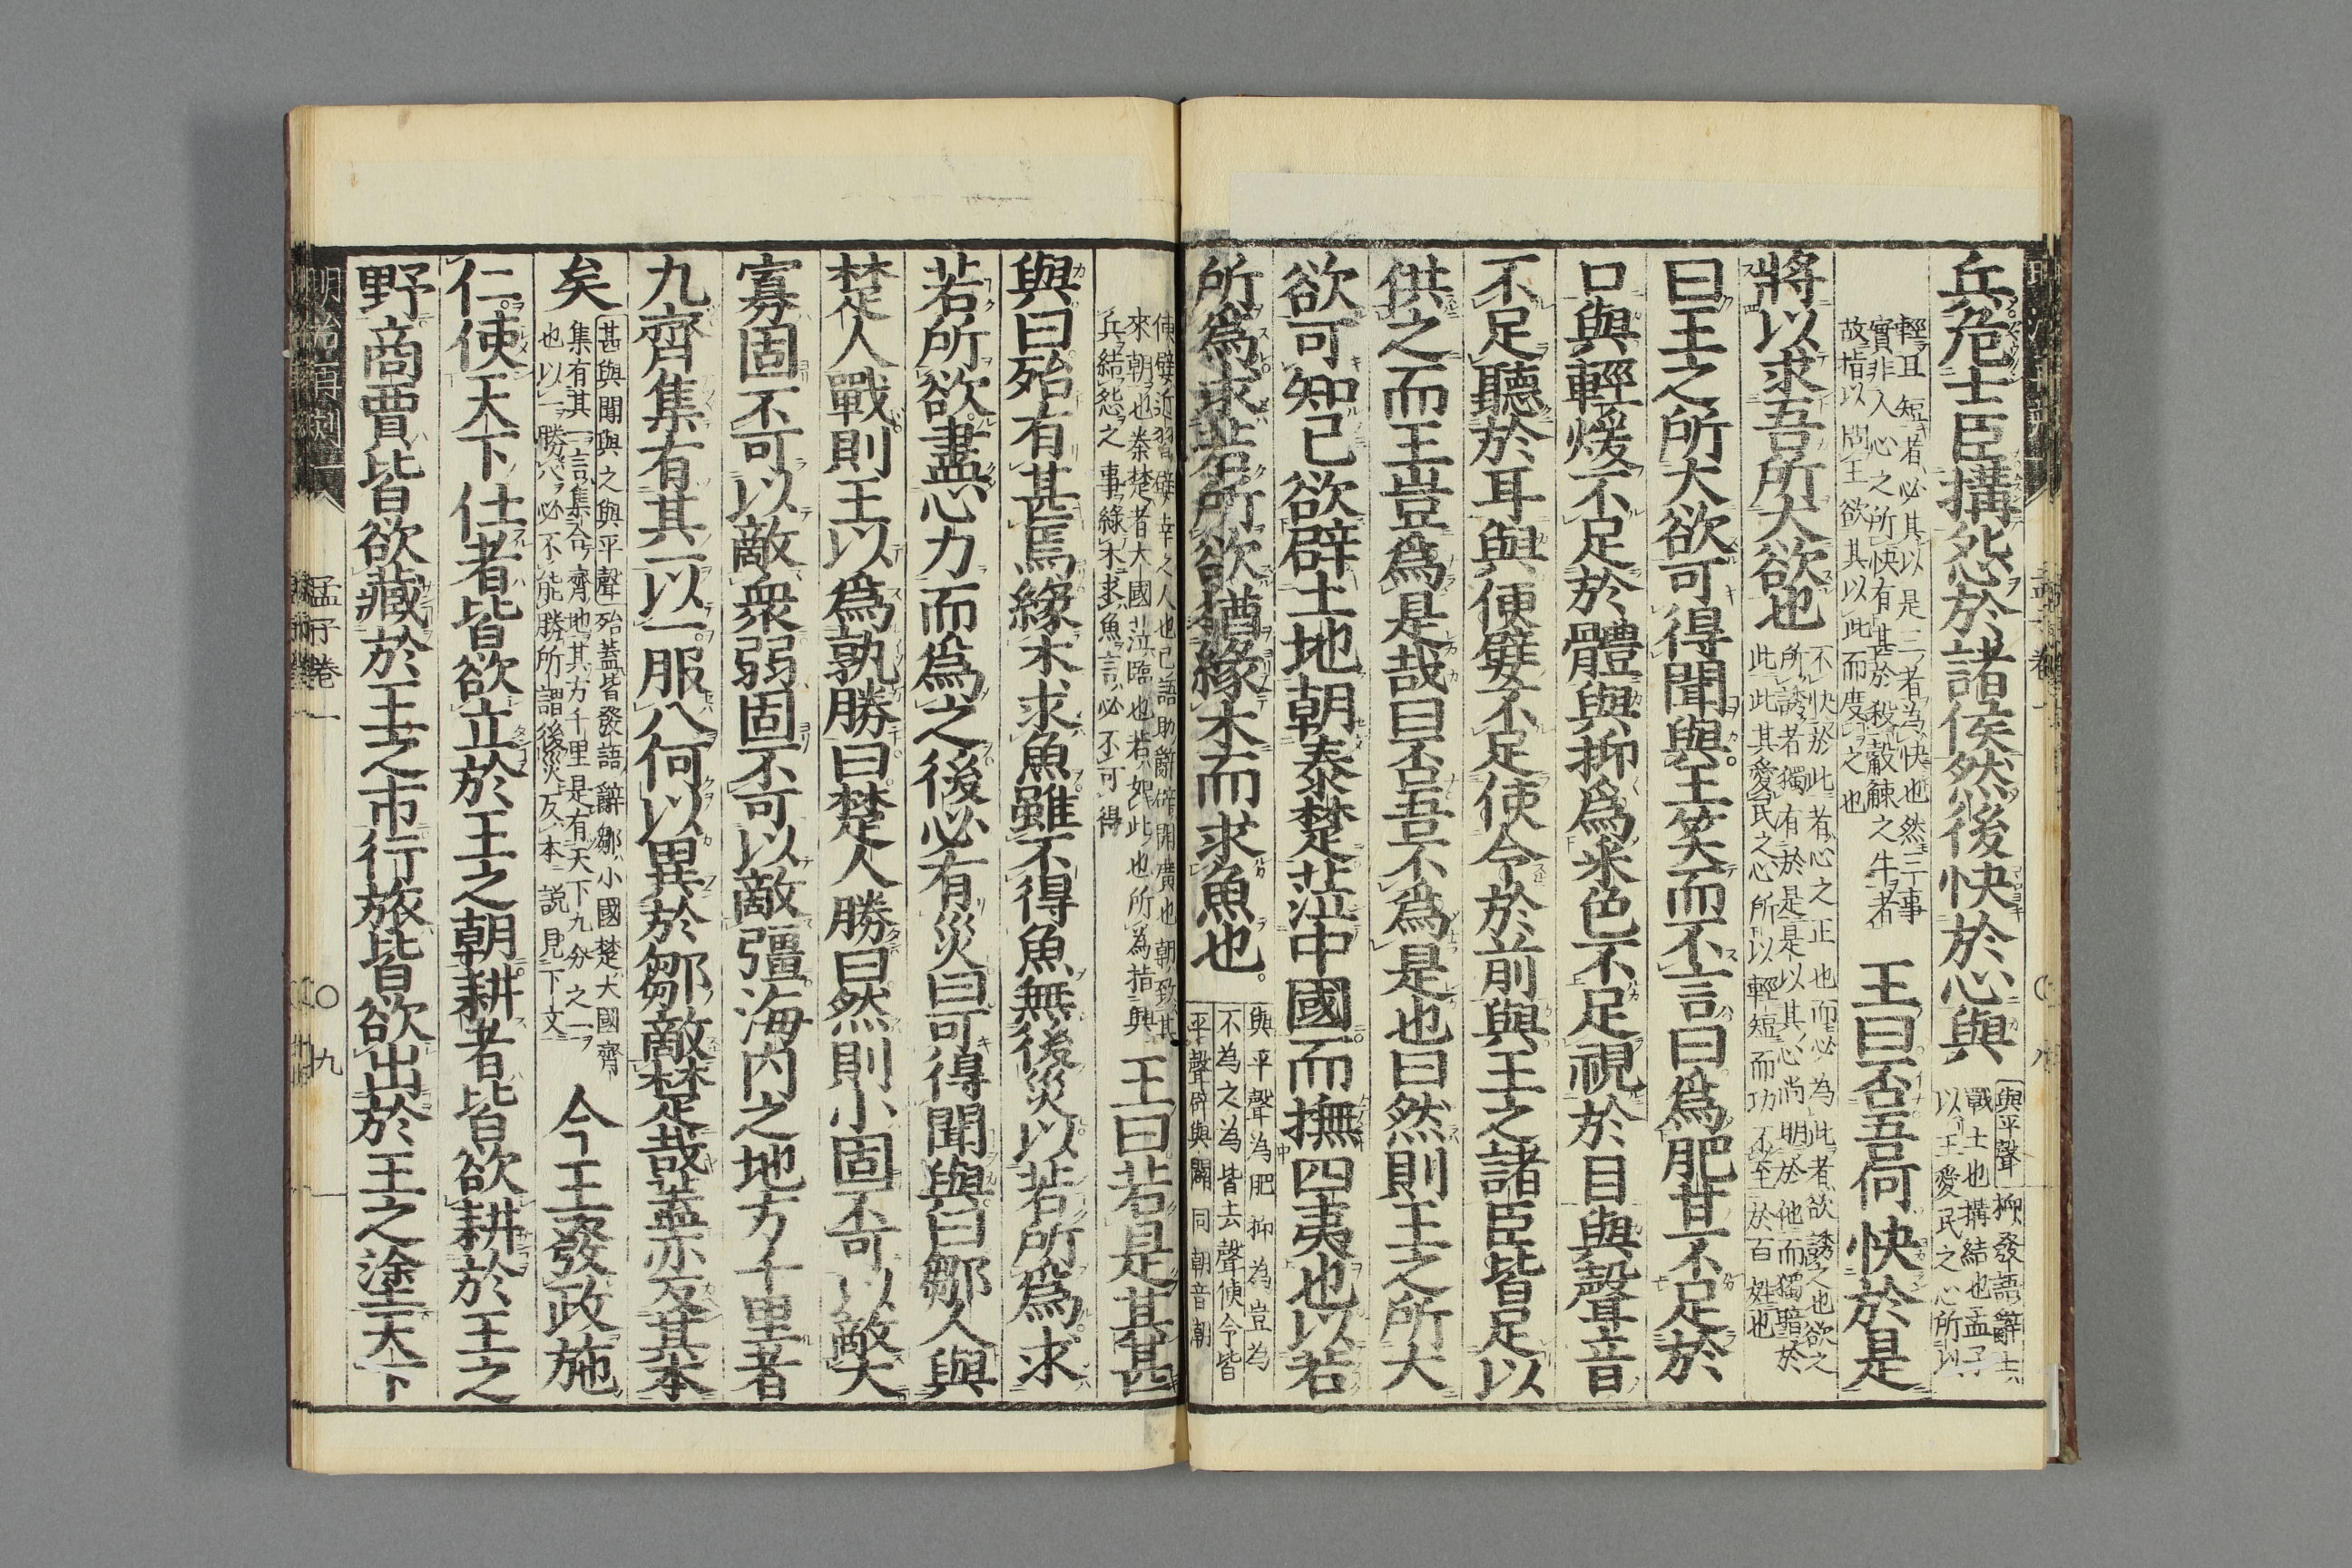 兵危士臣搆怨於諸侯然後快於心與
與平聲 抑發語辭士
戰士也搆結也孟子
以王愛民之心所以
輕且短者必其以是三者為快也然三事
實非人心之所快有甚於殺觳觫之牛者
故指以問王欲其以此而度之也
王曰否吾何快於是
將以求吾所大欲也
不快於此者心之正也而必為此者欲誘之也欲之
所誘者獨有於是是以其心尚明於他而獨暗於
此此其愛民之心所以輕短而功不至於百姓也
曰王之所大欲可得聞與王笑而不言曰爲肥甘不足於
口與輕煖不足於體與抑爲采色不足視於目與聲音
不足聽於耳與便嬖不足使令於前與王之諸臣皆足以
供之而王豈爲是哉曰否吾不爲是也曰然則王之所大
欲可知已欲辟土地朝秦楚莅中國而撫四夷也以若
所爲求若所欲猶緣木而求魚也
與平聲為肥抑為豈為
不為之為皆去聲便令皆
平聲辟與闢同朝音潮
便嬖近習嬖幸之人也已語助辭辟開廣也朝致其
來朝也秦楚皆大國莅臨也若如此也所為指興
兵結怨之事緣木求魚言必不可得
王曰若是其甚
與曰殆有甚焉緣木求魚雖不得魚無後災以若所爲求
若所欲盡心力而爲之後必有災曰可得聞與曰鄒人與
楚人戰則王以爲孰勝曰楚人勝曰然則小固不可以敵大
寡固不可以敵衆弱固不可以敵彊海內之地方千里者
九齊集有其一以一服八何以異於鄒敵楚哉蓋亦反其本
矣
甚與聞與之與平聲 殆蓋皆發語辭鄒小國楚大國齊
集有其一言集合齊地其方千里是有天下九分之一
也以一勝八必不能勝所謂後災也反本説見下文
今王發政施
仁使天下仕者皆欲立於王之朝耕者皆欲耕於王之
野商賈皆欲藏於王之市行旅皆欲出於王之塗天下
孟子卷一
九